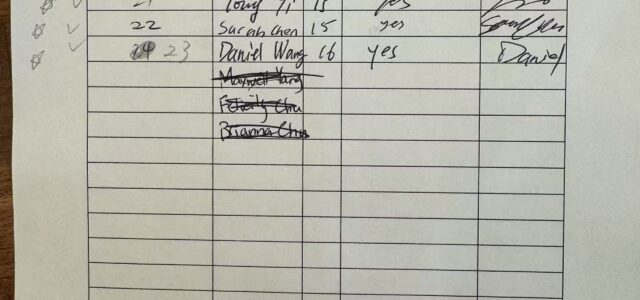 21 Tony Yi 15 yes
22 Sarah Chen 15 yes
23 Daniel Wang 16 yes Daniel
Maxwell Yang
Brianna Chu